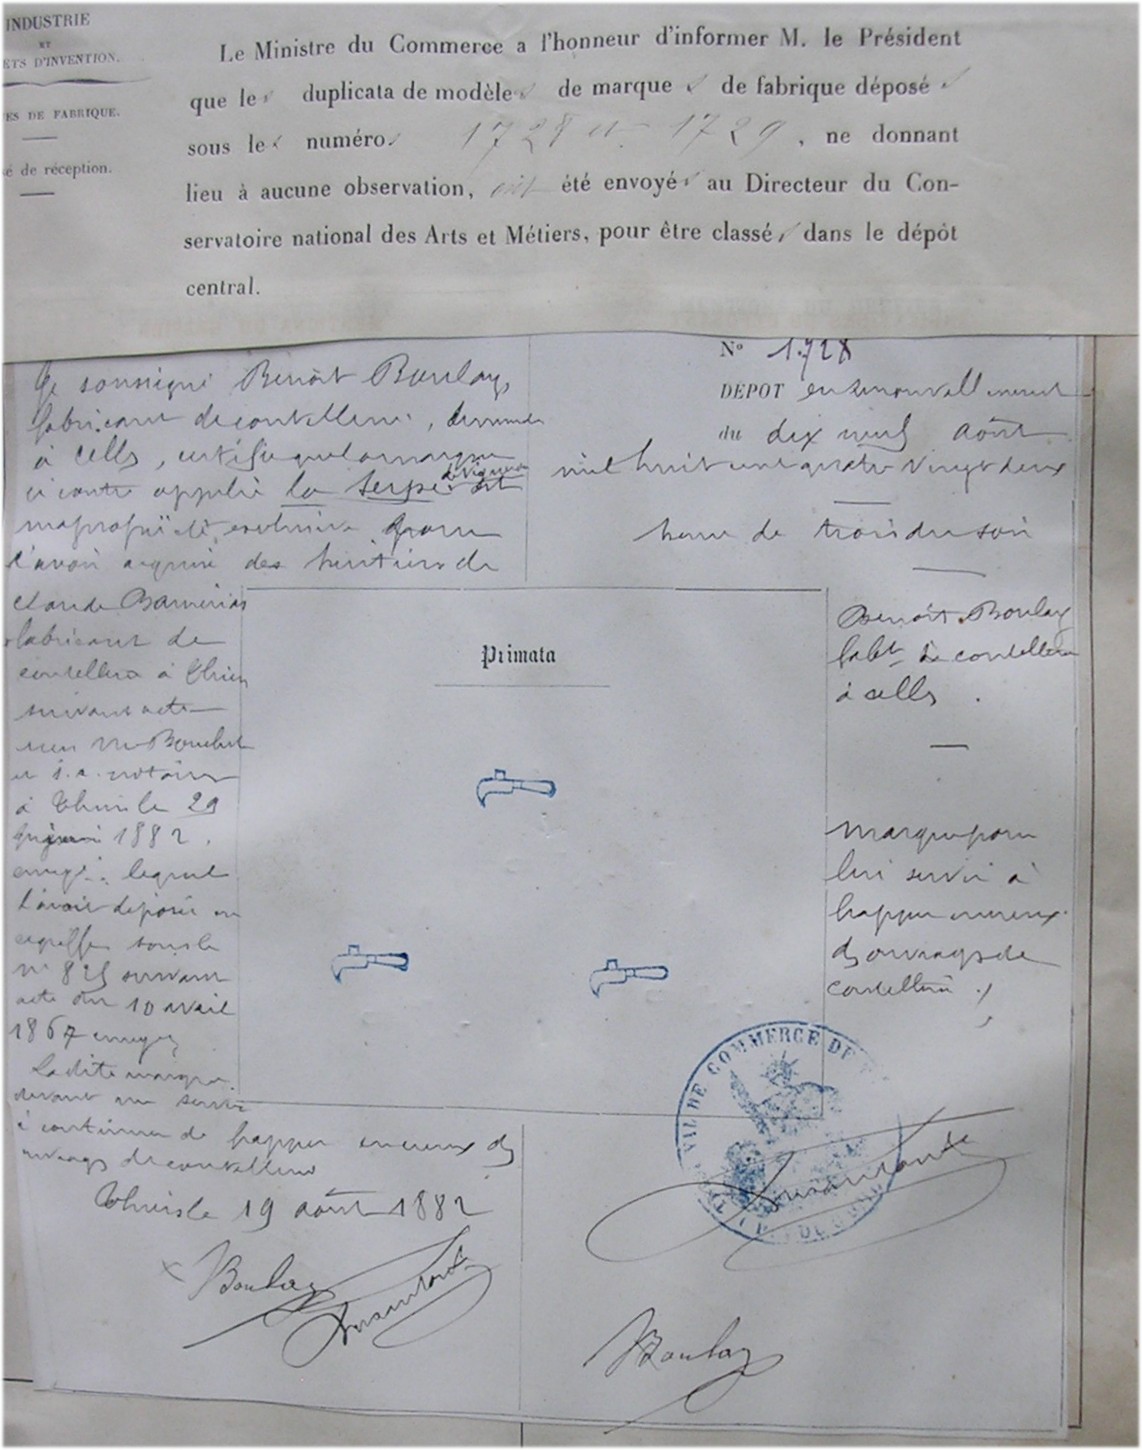 INDUSTRIE
ET
ETS D'INVENTION.
ES DE FABRIQUE.
é de réception.
Le Ministre du Commerce a l'honneur d'informer M. le Président
que les duplicata de modèles de marque s de fabrique déposés
sous les numéros 1728 et 1729, ne donnant
lieu à aucune observation, ont été envoyés au Directeur du Con-
servatoire national des Arts et Métiers, pour être classés dans le dépôt
central.
Je soussigné Benoit Boulay,
fabricant de coutellerie, demeurant
à Celles, certifie que la marque
ci contre appelée la Serpe de vigneron est
ma propriété exclusive pour
l'avoir acquise des héritiers de
Claude Barnérias
fabricant de
coutellerie à Thiers
suivant acte
reçu Me Bouchet
notaire
à Thiers le 29
1882
enregé. lequel
l'avait déposée au
greffe sous le
n° 825 suivant
acte du 10 avril
1867 enregé
La dite marque
devant me servir
à continuer de frapper en creux des
ouvrages de coutellerie
Thiers le 19 août 1882
Boulay
N° 1728
DÉPOT en renouvellement
du dix neuf août
mil huit cent quatre vingt deux
heure de trois du soir
Benoit Boulay
fabt de coutellerie
à Celles.
Primata
marque pour
lui servir à
frapper en creux
des ouvrages de
coutellerie
TRIBUNAL DE COMMERCE DE
Boulay